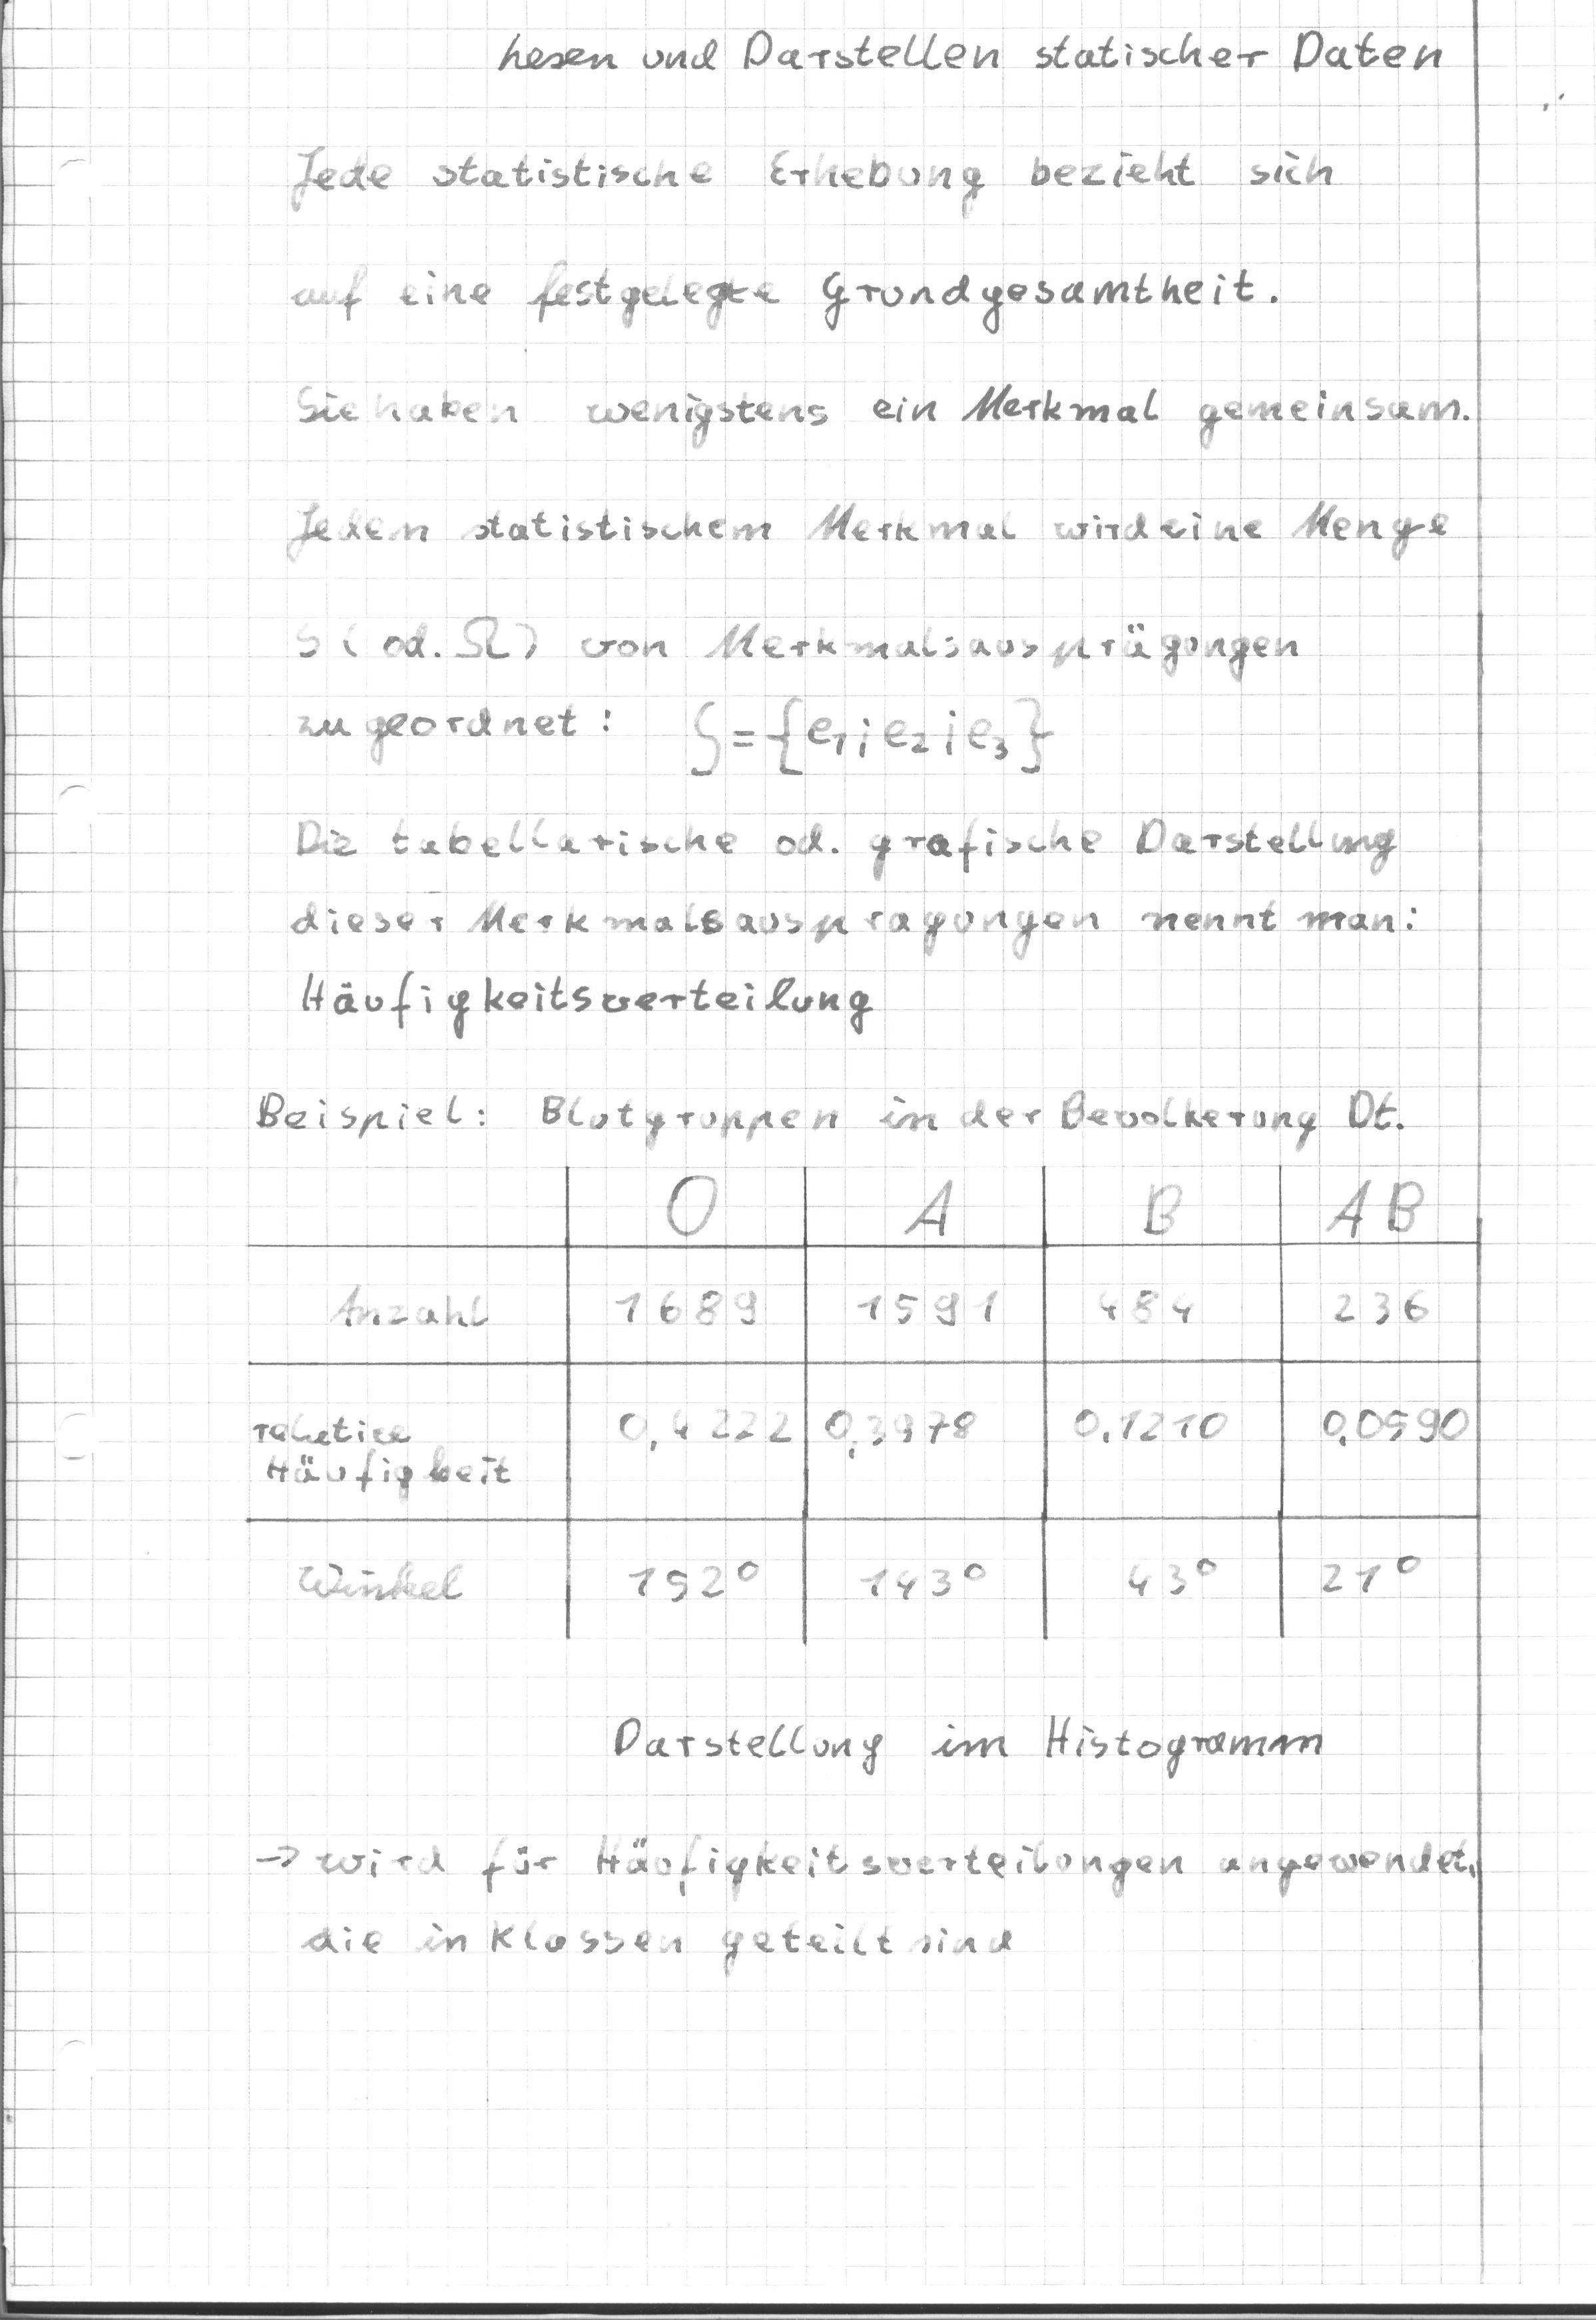 Lesen und Darstellen statischer Daten
Jede statistische Erhebung bezieht sich
auf eine festgelegte Grundgesamtheit.
Sie haben wenigstens ein Merkmal gemeinsam.
Jedem statistischem Merkmal wird eine Menge
S (od. Ω) von Merkmalsausprägungen
zugeordnet: S = {e₁; e₂; e₃}
Die tabellarische od. grafische Darstellung
dieser Merkmalsauspragungen nennt man:
Häufigkeitsverteilung
Beispiel: Blutgruppen in der Bevolkerung Dt.
O A B AB
Anzahl 1689 1591 484 236
relative Häufigkeit 0,4222 0,3978 0,1210 0,0590
Winkel 152° 143° 43° 21°
Darstellung im Histogramm
→ wird für Häufigkeitsverteilungen angewendet,
die in Klassen geteilt sind